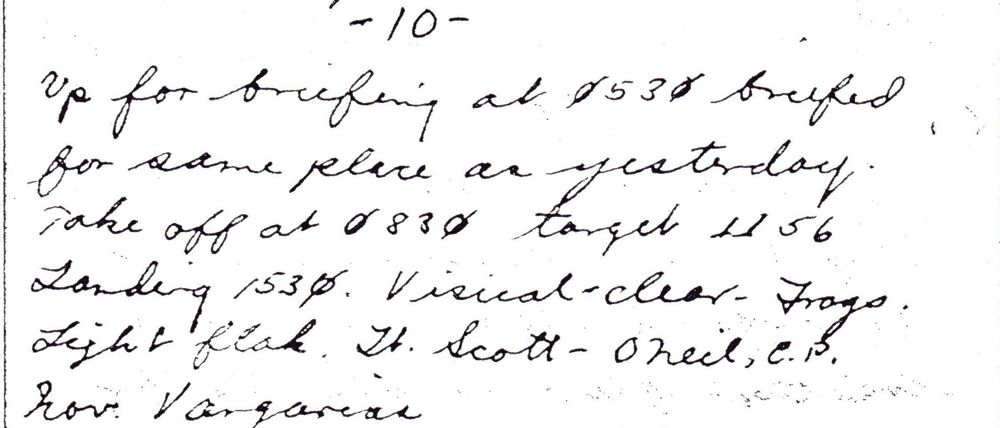 -10-
Up for briefing at 0530 briefed
for same place as yesterday.
Take off at 0830 target 1156
Landing 1530. Visual-clear- Frags.
Light flak. Lt. Scott- Oneil, C.P.
Nov.